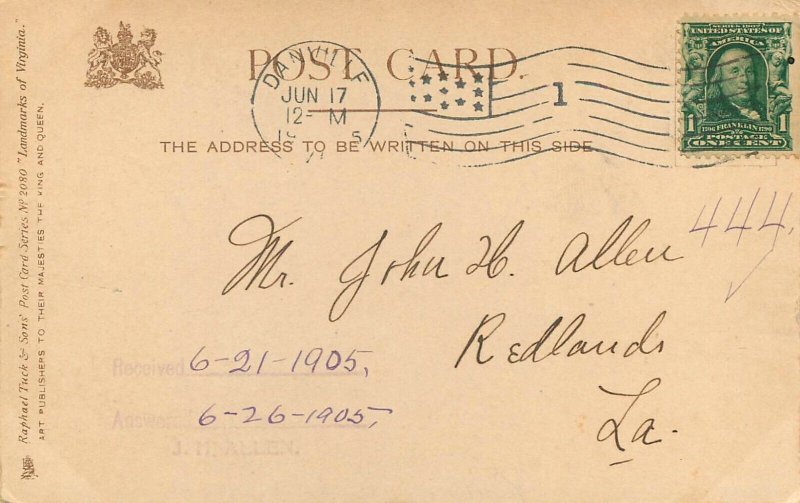 POST CARD.
DANVILLE
JUN 17
12- M
1
SERIES 1902
UNITED STATES OF
AMERICA
1 1706 FRANKLIN 1790 1
POSTAGE
ONE CENT
THE ADDRESS TO BE WRITTEN ON THIS SIDE
444.
Mr. John H. Allen
Redlands
La.
Received 6-21-1905,
Answered 6-26-1905,
J. H. ALLEN.
Raphael Tuck & Sons' Post Card Series Nº 2080 "Landmarks of Virginia."
ART PUBLISHERS TO THEIR MAJESTIES THE KING AND QUEEN.